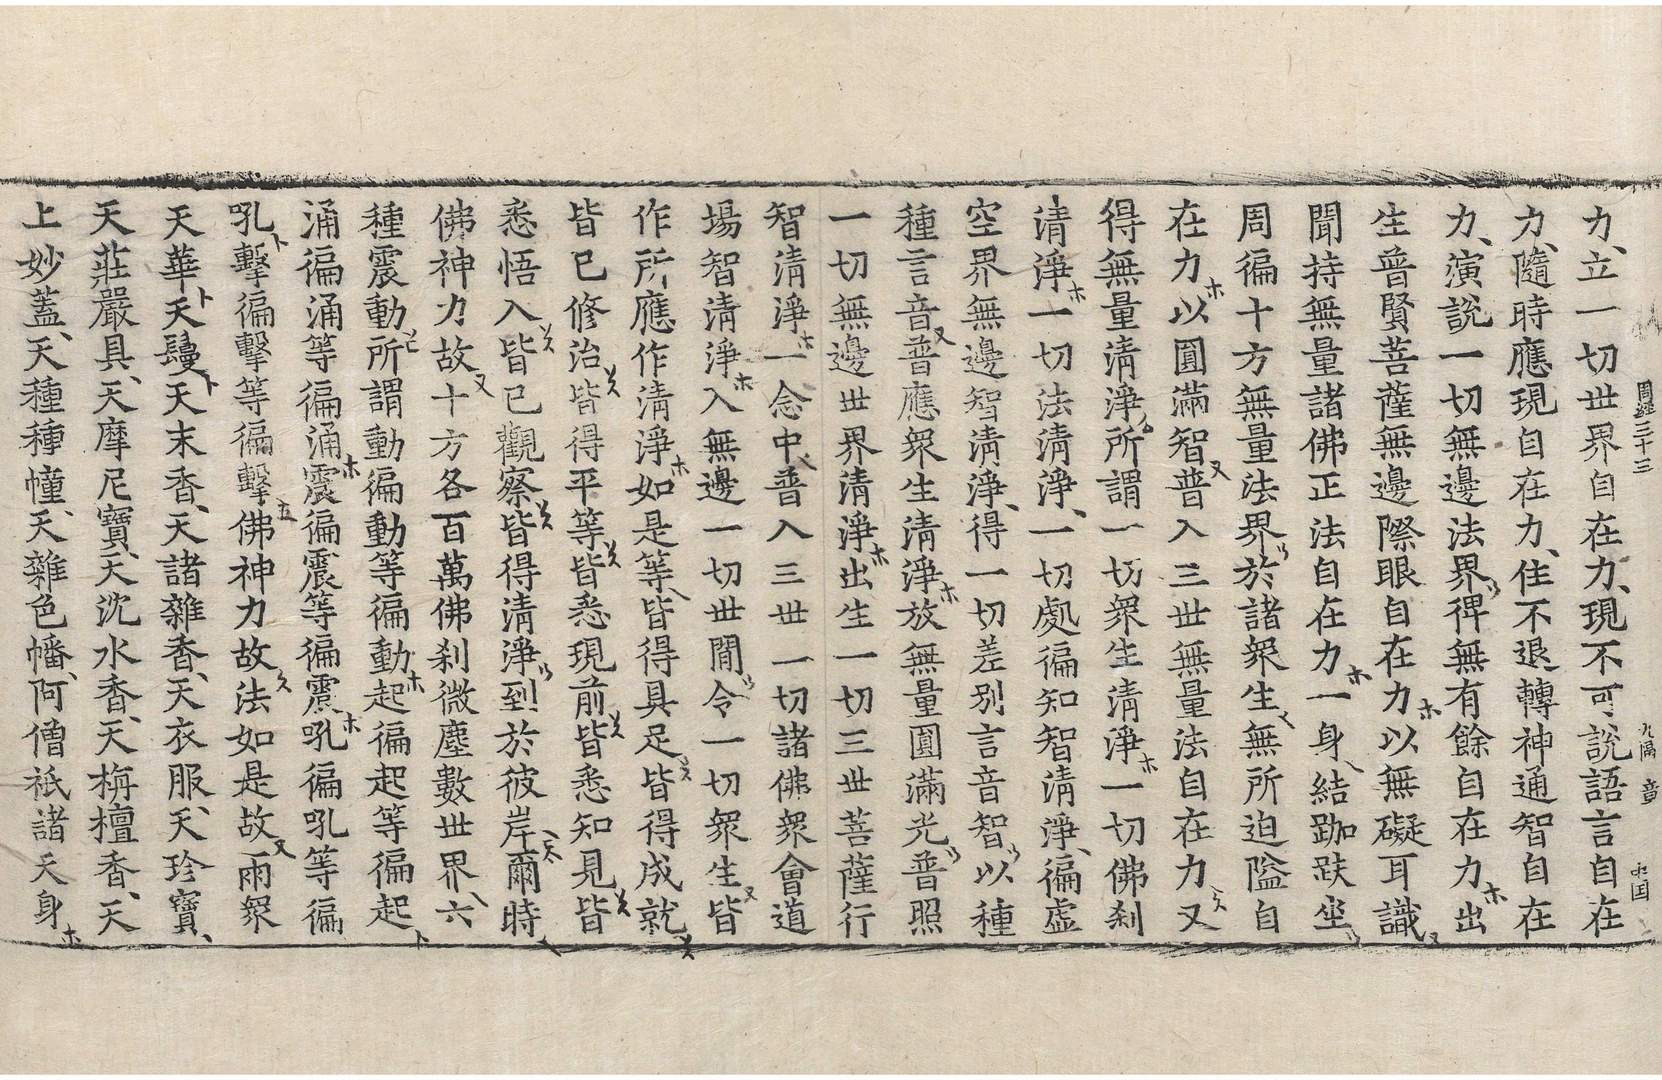 力立一切世界自在力現不可說語言自在
力隨時應現自在力住不退轉神通智自在
力演說一切無邊法界俾無有餘自在力出
生普賢菩薩無邊際眼自在力以無礙耳識
聞持無量諸佛正法自在力一身結跏趺坐
周徧十方無量法界於諸衆生無所迫隘自
在力以圓滿智普入三世無量法自在力又
得無量清淨所謂一切衆生清淨一切佛刹
清淨一切法清淨一切處徧知智清淨徧虛
空界無邊智清淨得一切差別言音智以種
種言音普應衆生清淨放無量圓滿光普照
一切無邊世界清淨出生一切三世菩薩行
智清淨一念中普入三世一切諸佛衆會道
場智清淨入無邊一切世間令一切衆生皆
作所應作清淨如是等皆得具足皆得成就
皆已修治皆得平等皆悉現前皆悉知見皆
悉悟入皆已觀察皆得清淨到於彼岸爾時
佛神力故十方各百萬佛刹微塵數世界六
種震動所謂動徧動等徧動起徧起等徧起
涌徧涌等徧涌震徧震等徧震吼徧吼等徧
吼擊徧擊等徧擊佛神力故法如是故雨衆
天華天鬘天末香天諸雜香天衣服天珍寶
天莊嚴具天摩尼寶天沈水香天栴檀香天
上妙蓋天種種幢天雜色幡阿僧祇諸天身
周經三十三